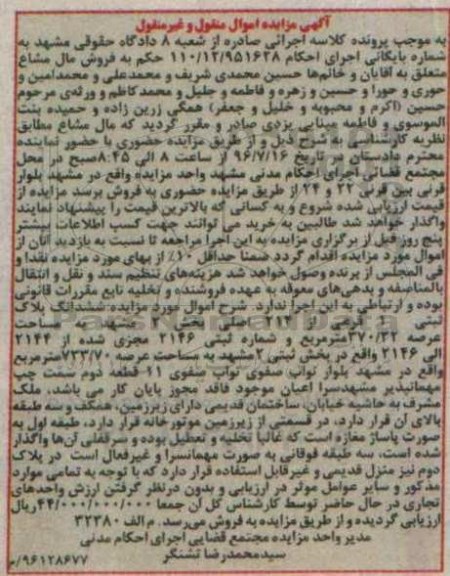 آگهی مزایده اموال منقول و غیرمنقول
به موجب پرونده کلاسه اجرائی صادره از شعبه ۸ دادگاه حقوقی مشهد به
شماره بایگانی اجرای احکام ۱۱۰/۱۲/۹۵۱۶۲۸ حکم به فروش مال مشاع
متعلق به آقایان و خانم‌ها حسین محمدی شریف و محمدعلی و محمدامین و
حوری و حورا و حسین و زهره و فاطمه و جلیل و محمدکاظم و ورثه‌ی مرحوم
حسین (اکرم و محبوبه و خلیل و جعفر) همگی زرین زاده و حمیده بنت
الموسوی و فاطمه مینایی یزدی صادر و مقرر گردید که مال مشاع مطابق
نظریه کارشناسی به شرح ذیل و از طریق مزایده حضوری با حضور نماینده
محترم دادستان در تاریخ ۹۶/۷/۱۶ از ساعت ۸ الی ۸:۴۵ صبح در محل
مجتمع قضائی اجرای احکام مدنی مشهد واحد مزایده واقع در مشهد بلوار
قرنی بین قرنی ۲۲ و ۲۴ از طریق مزایده حضوری به فروش برسد مزایده از
قیمت ارزیابی شده شروع و به کسانی که بالاترین قیمت را پیشنهاد نمایند
واگذار خواهد شد طالبین به خرید می توانند جهت کسب اطلاعات بیشتر
پنج روز قبل از برگزاری مزایده به این اجرا مراجعه تا نسبت به بازدید آنان از
اموال مورد مزایده اقدام گردد ضمنا حداقل ۱۰٪ از بهای مورد مزایده نقدا و
فی المجلس از برنده وصول خواهد شد هزینه‌های تنظیم سند و نقل و انتقال
بالمناصفه و بدهی‌های معوقه به عهده فروشنده و تخلیه تابع مقررات قانونی
بوده و ارتباطی به این اجرا ندارد. شرح اموال مورد مزایده ششدانگ پلاک
ثبتی فرعی از اصلی بخش مشهد به مساحت
عرصه ۳۷۰/۳۲ مترمربع و شماره ثبتی ۲۱۴۶ مجزی شده از ۲۱۴۴
الی ۲۱۴۶ واقع در بخش ثبتی ۲ مشهد به مساحت عرصه ۷۳۳/۷۰ مترمربع
واقع در مشهد بلوار نواب صفوی نواب صفوی ۱۱ قطعه دوم سمت چپ
مهمانپذیر مشهدسرا اعیان موجود فاقد مجوز پایان کار می باشد، ملک
مشرف به حاشیه خیابان، ساختمان قدیمی دارای زیرزمین، همکف و سه طبقه
بالای آن قرار دارد، در قسمتی از زیرزمین موتورخانه قرار دارد، طبقه اول به
صورت پاساژ مغازه است که غالبا تخلیه و تعطیل بوده و سرقفلی آن‌ها واگذار
شده است، سه طبقه فوقانی به صورت مهمانسرا و غیرفعال است در پلاک
دوم نیز منزل قدیمی و غیرقابل استفاده قرار دارد که با توجه به تمامی موارد
مذکور و سایر عوامل موثر در ارزیابی و بدون درنظر گرفتن ارزش واحدهای
تجاری در حال حاضر توسط کارشناس کل آن جمعا ۴۴/۰۰۰/۰۰۰/۰۰۰ ریال
ارزیابی گردیده و از طریق مزایده به فروش می‌رسد. م الف ۳۲۳۸۰
مدیر واحد مزایده مجتمع قضایی اجرای احکام مدنی
سیدمحمدرضا تشنگر
۹۶۱۲۸۶۷۷/م